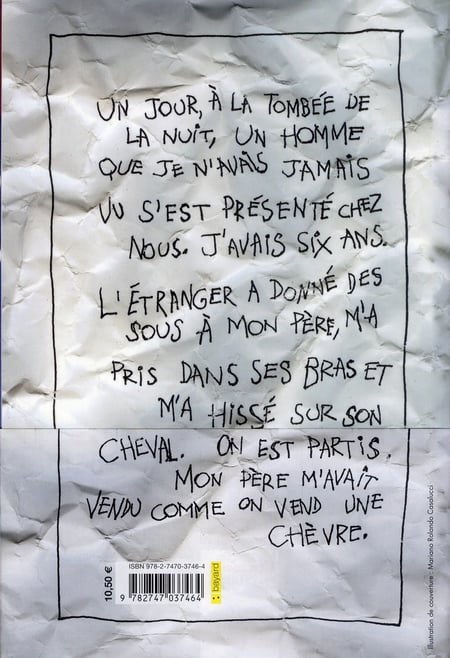 UN JOUR, À LA TOMBÉE DE
LA NUIT, UN HOMME
QUE JE N'AVAIS JAMAIS
VU S'EST PRÉSENTÉ CHEZ
NOUS. J'AVAIS SIX ANS.
L'ÉTRANGER A DONNÉ DES
SOUS À MON PÈRE, M'A
PRIS DANS SES BRAS ET
M'A HISSÉ SUR SON
CHEVAL. ON EST PARTIS.
MON PÈRE M'AVAIT
VENDU COMME ON VEND UNE
CHÈVRE.
ISBN 978-2-7470-3746-4
10,50 €
9 782747 037464
bayard
Illustration de couverture : Mariano Rolando Casalucci